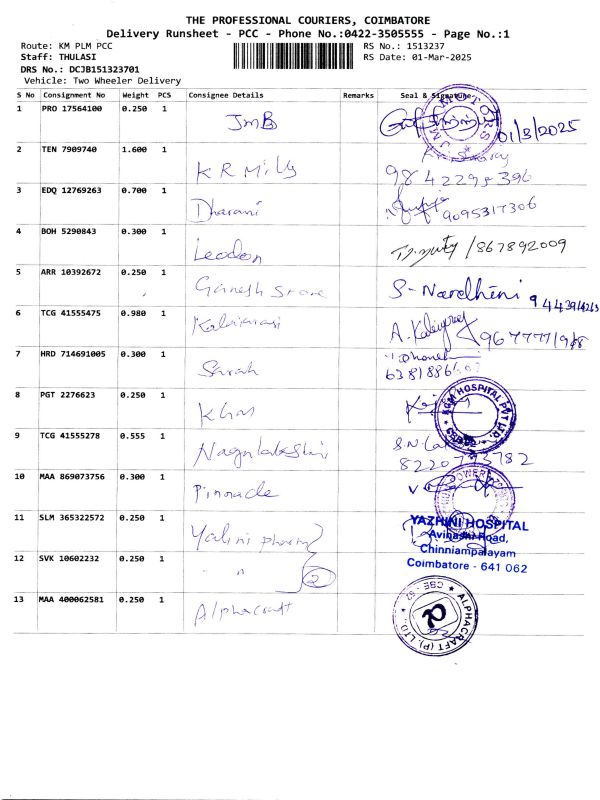 THE PROFESSIONAL COURIERS, COIMBATORE
Delivery Runsheet - PCC - Phone No.:0422-3505555 - Page No.:1
Route: KM PLM PCC RS No.: 1513237
Staff: THULASI RS Date: 01-Mar-2025
DRS No.: DCJB151323701
Vehicle: Two Wheeler Delivery
S No Consignment No Weight PCS Consignee Details Remarks Seal & Signature
1 PRO 17564100 0.250 1 JMB 01/3/2025
2 TEN 7909740 1.600 1 K R Mills 9842295396
3 EDQ 12769263 0.700 1 Dharani 9095317306
4 BOH 5290843 0.300 1 Leadon /867892009
5 ARR 10392672 0.250 1 Ganesh Store S- Nandhini
6 TCG 41555475 0.980 1 A.
7 HRD 714691005 0.300 1 Sarah
8 PGT 2276623 0.250 1 KGM HOSPITAL PVT LTD
9 TCG 41555278 0.555 1 S.N.
10 MAA 869073756 0.300 1 Pinnacle
11 SLM 365322572 0.250 1 Yalini pharm YAZHINI HOSPITAL
Avinashi Road,
12 SVK 10602232 0.250 1 " 2 Chinniampalayam
Coimbatore - 641 062
13 MAA 400062581 0.250 1 Alphacraft ALPHACRAFT (P) LTD CBE - 62